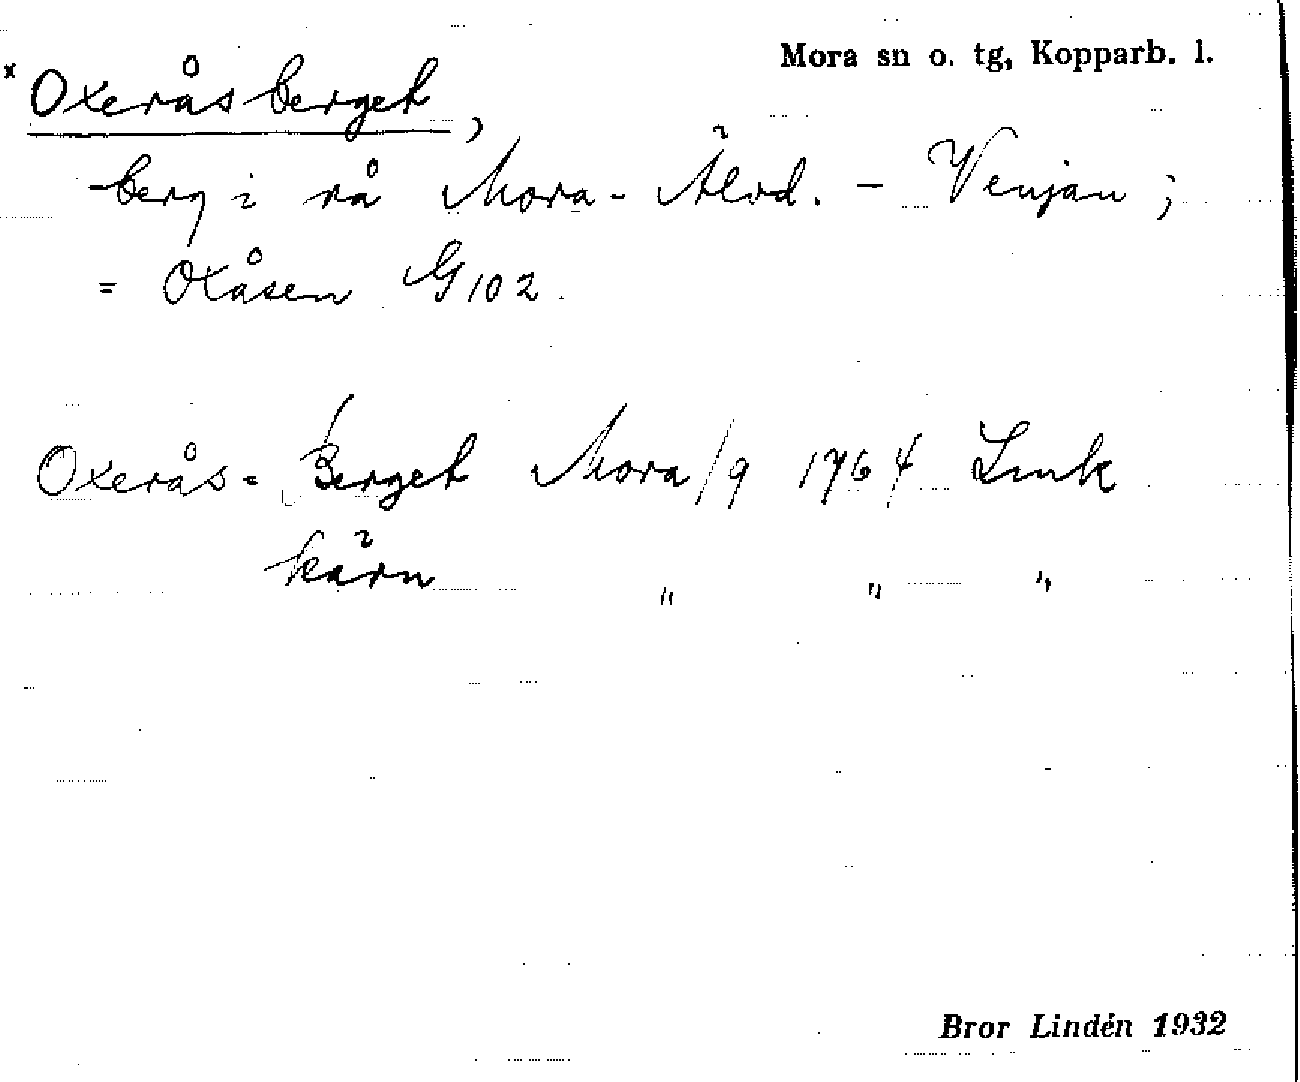 Mora sn o. tg, Kopparb. l.
x Oxeråsberget,
berg i rå Mora - Älvd. - Venjan ;
= Oxåsen G 102.
Oxerås = Berget Mora/9 1764 Lmk
kärn " " "
Bror Lindén 1932